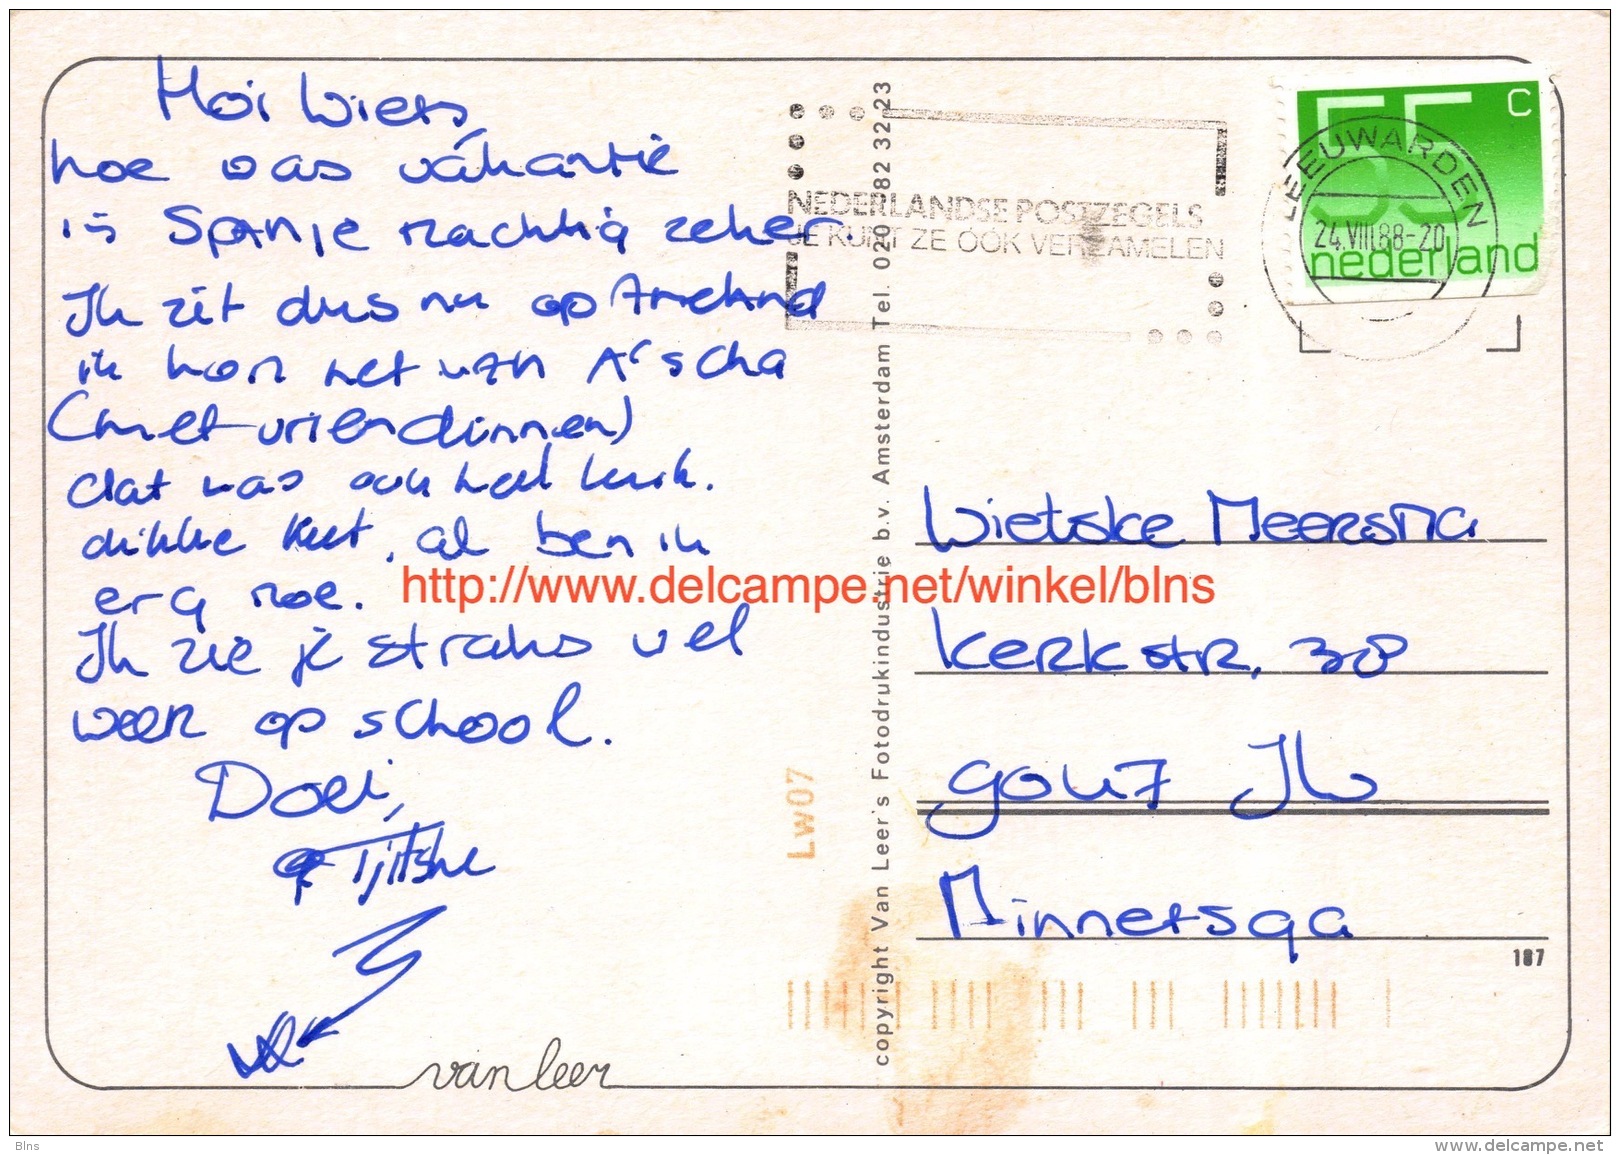 Hoi Wiets,
hoe was vákantie
in Spanje machtig zeker.
Ik zit dus nu op Ameland
ik kom net van A'scha
(met vriendinnen)
dat was ook heel leuk.
dikke keet, al ben ik
erg moe.
Ik zie je straks wel
weer op school.
Doei,
Tjitske
van leer
copyright Van Leer's Fotodrukindustrie b.v. Amsterdam Tel. 020-82 32 23
NEDERLANDSE POSTZEGELS
JE KUNT ZE OOK VERZAMELEN
LEEUWARDEN
24.VIII.88-20
55 C
nederland
Wietske Meersma
Kerkstr. 38
9047 JW
Minnertsga
187
LW07
http://www.delcampe.net/winkel/blns
Blns
www.delcampe.net